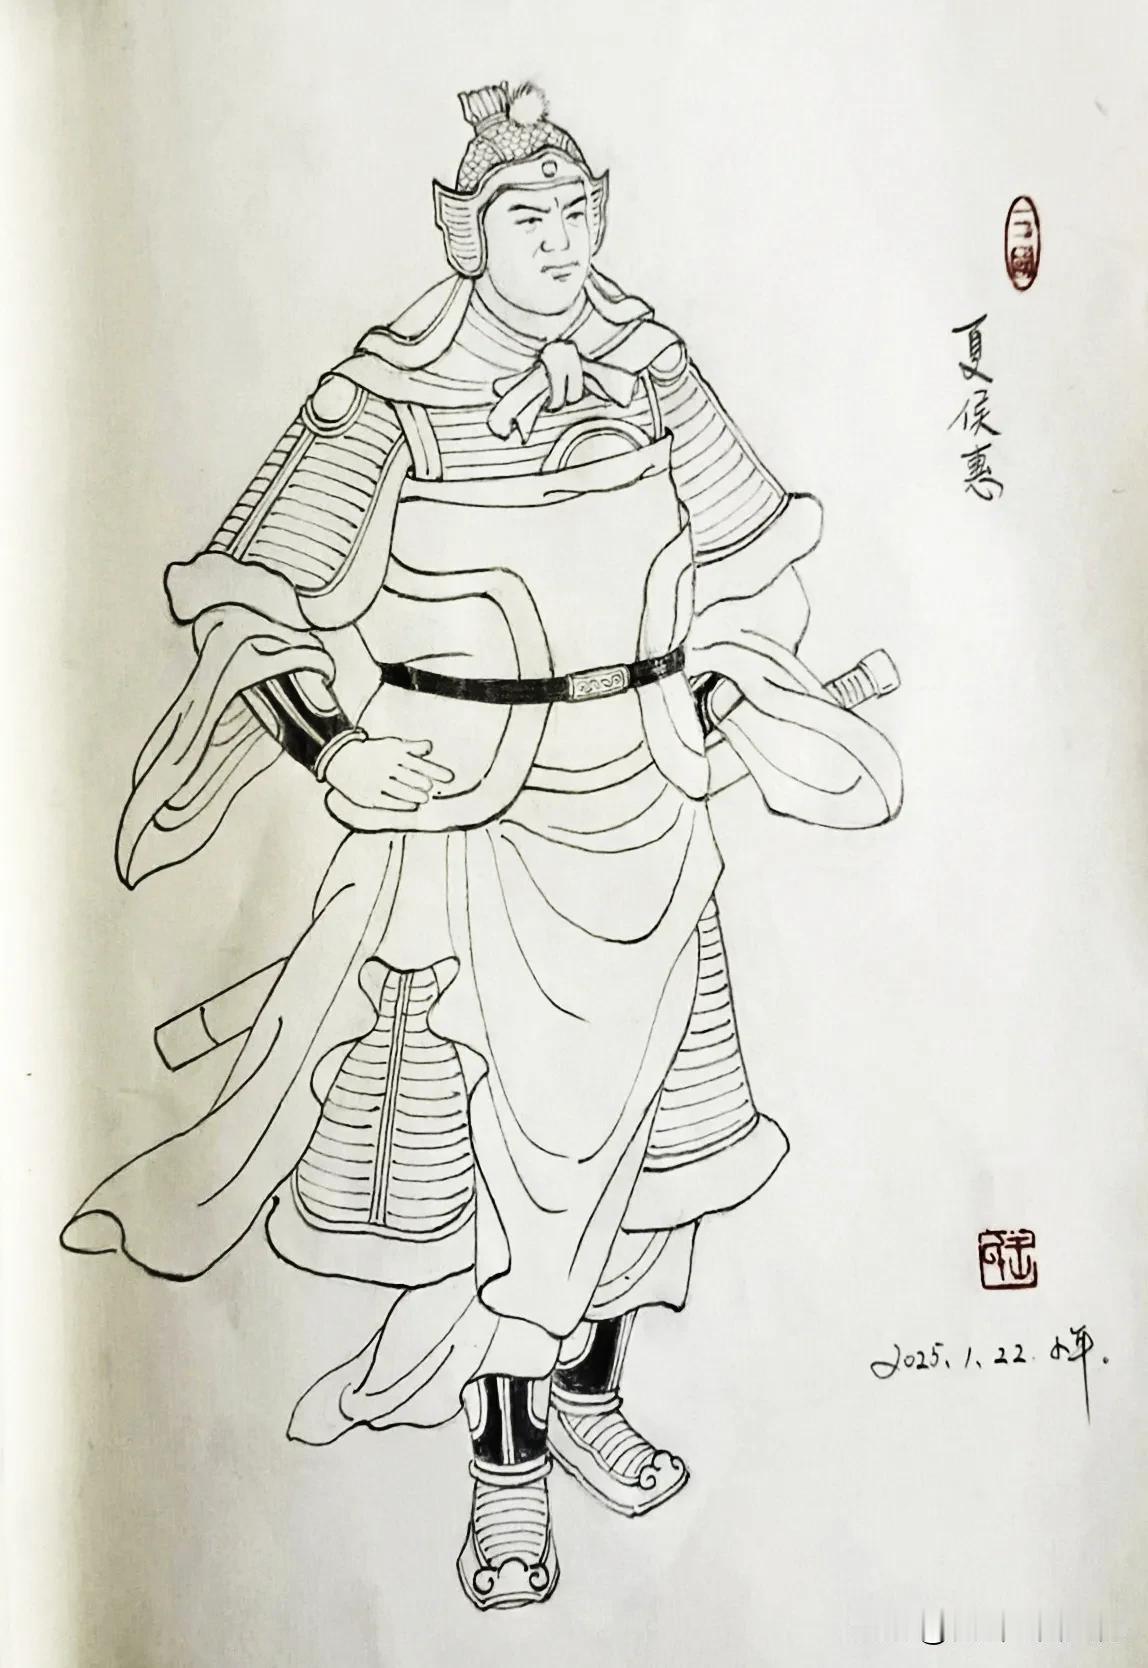 三国
夏侯惠
2025.1.22.小年.